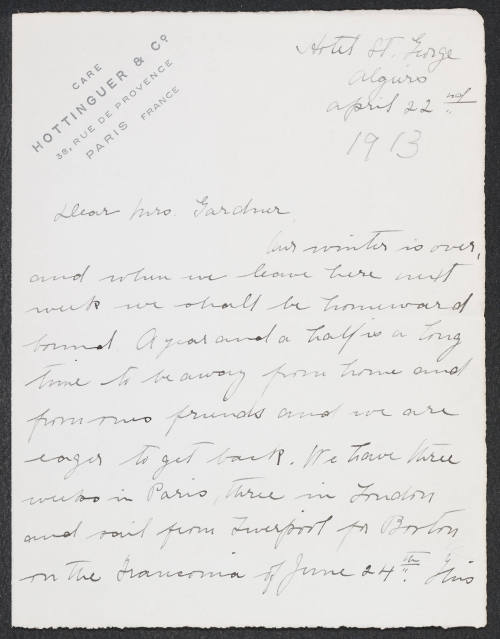 CARE
HOTTINGUER & Co
38, RUE DE PROVENCE
PARIS FRANCE
Hotel St. George
Algiers
April 22nd
1913
Dear Mrs. Gardner,
Our winter is over,
and when we leave here next
week we shall be homeward
bound. A year and a half is a long
time to be away from home and
from ones friends and we are
eager to get back. We have three
weeks in Paris, three in London
and sail from Liverpool for Boston
on the Franconia of June 24th. This